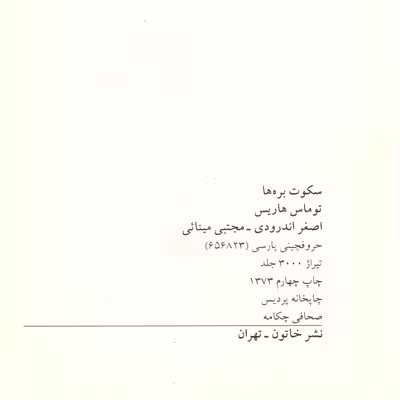 سکوت بره‌ها
توماس هاریس
اصغر اندرودی ـ مجتبی مینائی
حروفچینی پارسی (۶۵۶۸۲۳)
تیراژ ۳۰۰۰ جلد
چاپ چهارم ۱۳۷۳
چاپخانه پردیس
صحافی چکامه
نشر خاتون ـ تهران